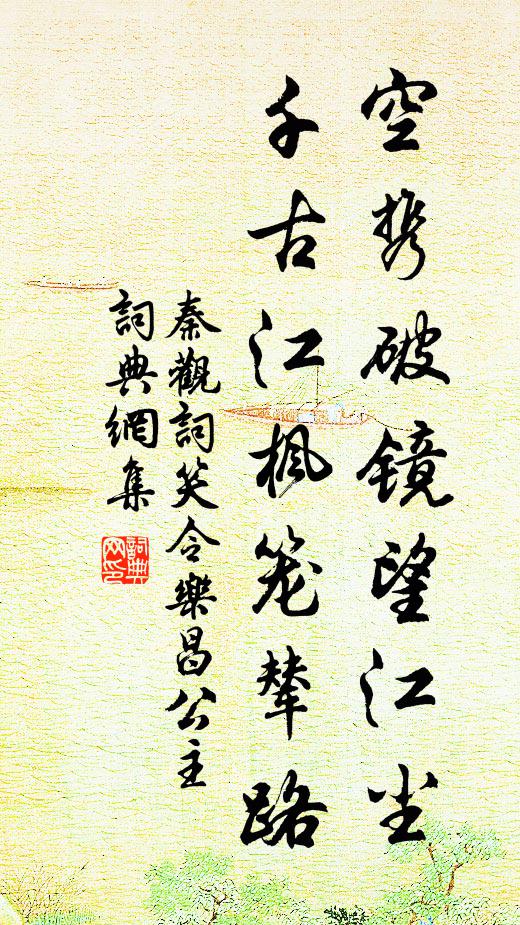 空携破镜望江尘
千古江枫笼辇路
秦觀詞笑令樂昌公主
詞典網集
詞典网印